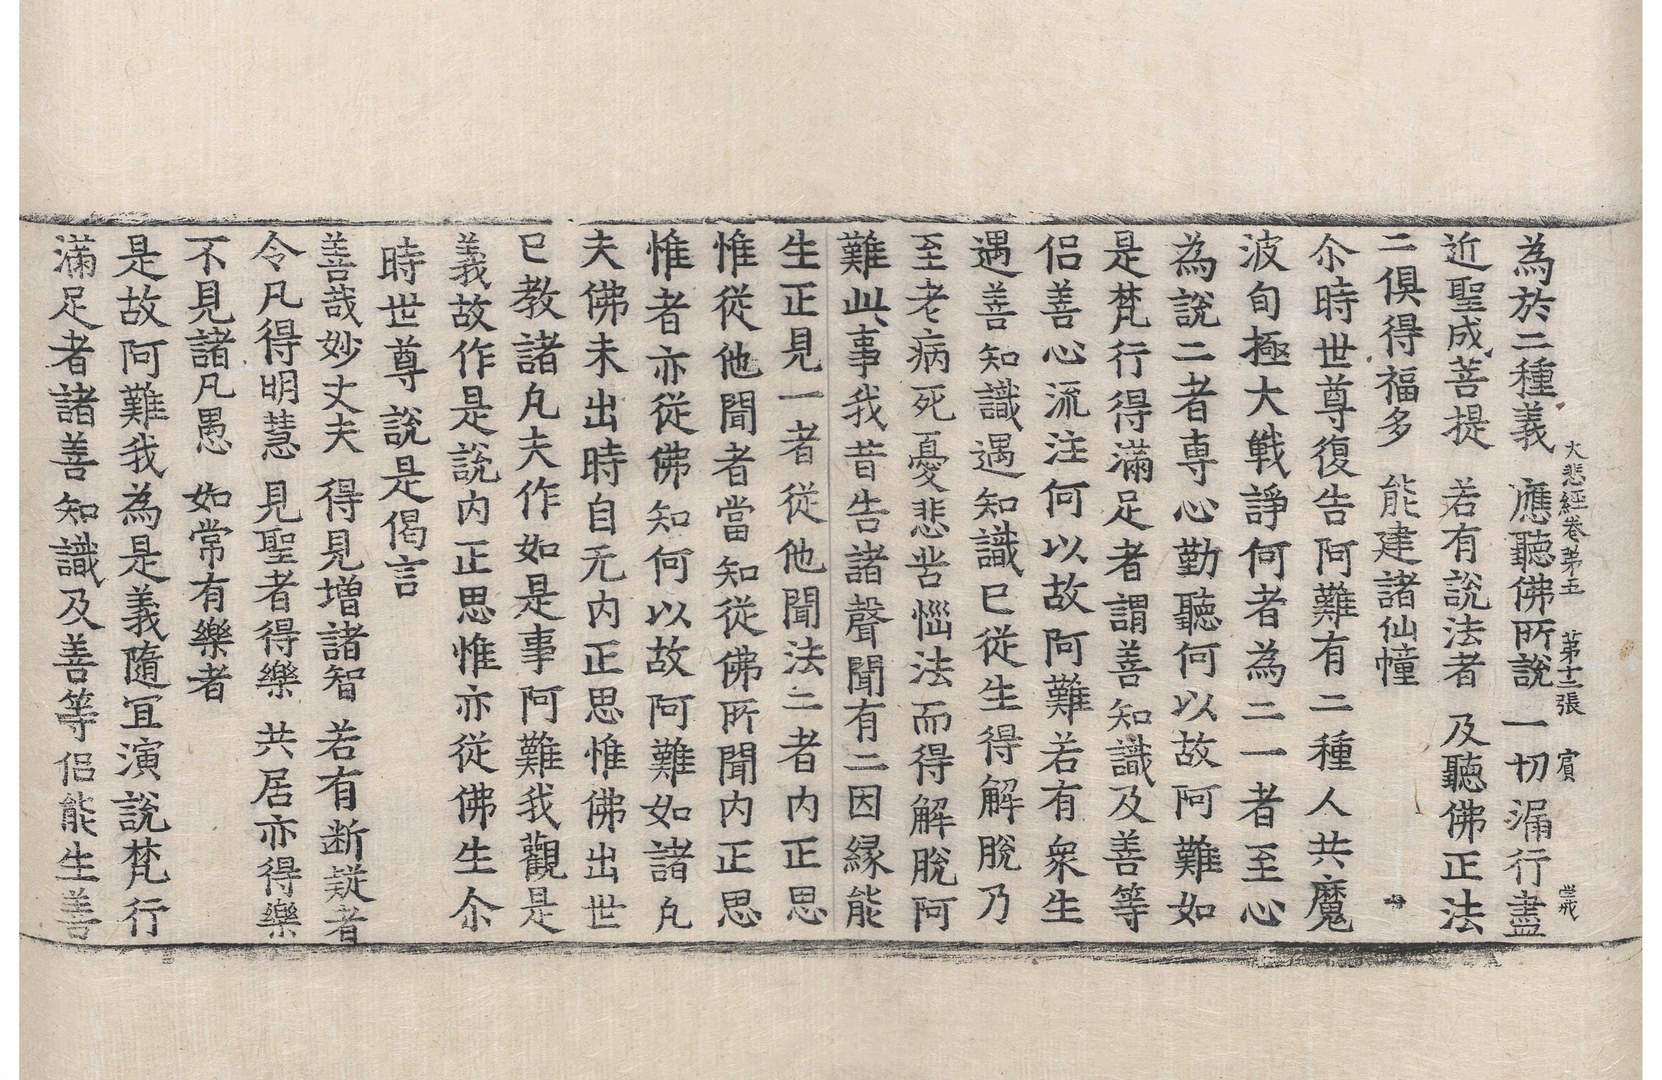 大悲經卷第五　第十二張　賓
為於二種義　應聽佛所說　一切漏行盡
近聖成菩提　若有說法者　及聽佛正法
二俱得福多　能建諸仙幢
尒時世尊復告阿難有二種人共魔
波旬極大戰諍何者為二一者至心
為說二者専心勤聽何以故阿難如
是梵行得滿足者謂善知識及善等
侶善心流注何以故阿難若有衆生
遇善知識遇知識已從生得解脫乃
至老病死憂悲苦惱法而得解脫阿
難此事我昔告諸聲聞有二因縁能
生正見一者從他聞法二者內正思
惟從他聞者當知從佛所聞內正思
惟者亦從佛知何以故阿難如諸凡
夫佛未出時自无內正思惟佛出世
已教諸凡夫作如是事阿難我觀是
義故作是說內正思惟亦從佛生尒
時世尊說是偈言
善哉妙丈夫　得見増諸智　若有断疑者
令凡得明慧　見聖者得樂　共居亦得樂
不見諸凡愚　如常有樂者
是故阿難我為是義隨宜演說梵行
滿足者諸善知識及善等侶能生善